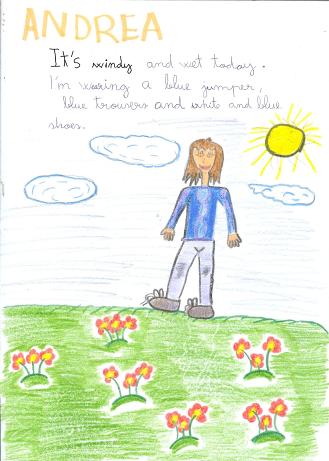 ANDREA
It's windy and wet today.
I'm wearing a blue jumper,
blue trousers and white and blue
shoes.